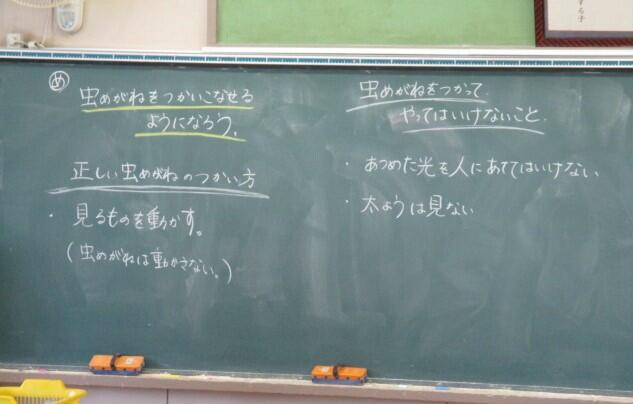 め
虫めがねをつかいこなせる
ようになろう。
正しい虫めがねのつかい方
・見るものを動かす。
(虫めがねは動かさない。)
虫めがねをつかって
やってはいけないこと
・あつめた光を人にあててはいけない
・太ようは見ない
する子